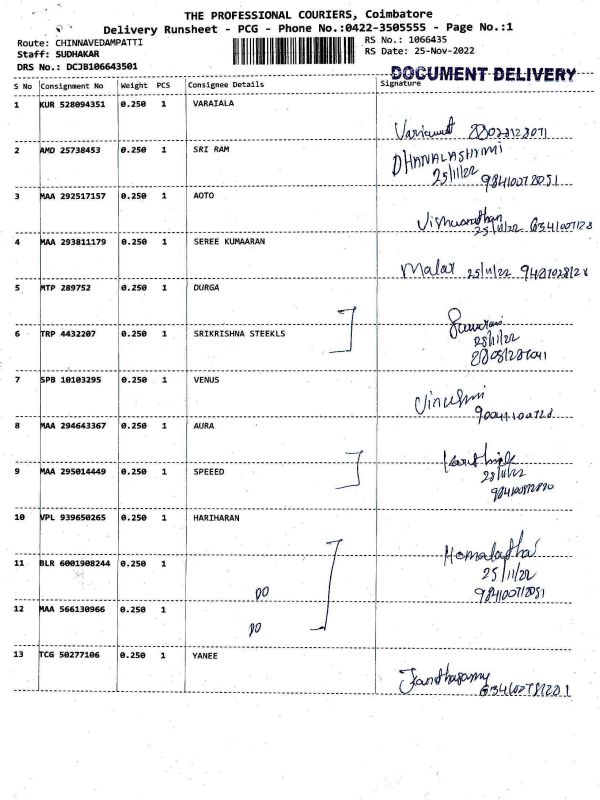 THE PROFESSIONAL COURIERS, Coimbatore
Delivery Runsheet - PCG - Phone No.:0422-3505555 - Page No.:1
Route: CHINNAVEDAMPATTI RS No.: 1066435
Staff: SUDHAKAR RS Date: 25-Nov-2022
DRS No.: DCJB106643501
DOCUMENT DELIVERY
S No Consignment No Weight PCS Consignee Details Signature
1 KUR 528094351 0.250 1 VARAIALA
2 AMD 25738453 0.250 1 SRI RAM
DHANALASHMI
25/11/22
3 MAA 292517157 0.250 1 AOTO
25/11/22
4 MAA 293811179 0.250 1 SEREE KUMAARAN
Malar 25/11/22
5 MTP 289752 0.250 1 DURGA
6 TRP 4432207 0.250 1 SRIKRISHNA STEEKLS
25/11/22
7 SPB 10103295 0.250 1 VENUS
8 MAA 294643367 0.250 1 AURA
9 MAA 295014449 0.250 1 SPEEED
10 VPL 939650265 0.250 1 HARIHARAN
Hemalatha
11 BLR 6001908244 0.250 1
25/11/22
DO
12 MAA 566130966 0.250 1
DO
13 TCG 50277106 0.250 1 YANEE